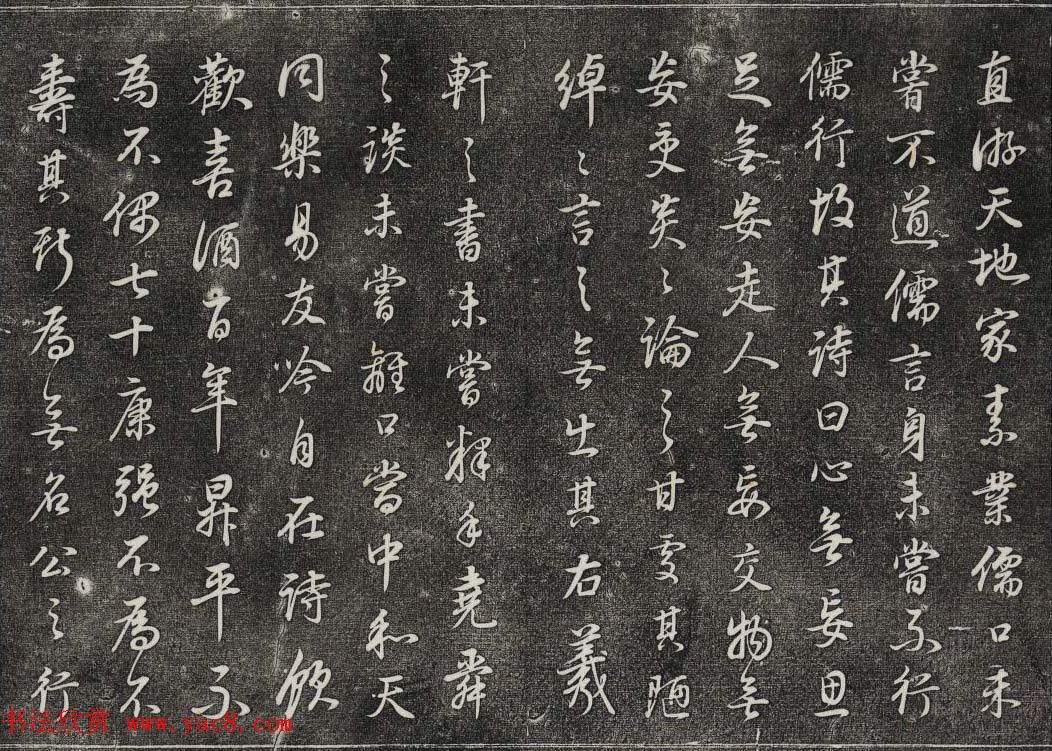 直游天地家素業儒口未
嘗不道儒言身未嘗不行
儒行故其詩曰心無妄思
足無妄走人無妄交物無
妄受炎炎論之甘處其陋
綽綽言之無出其右羲
軒之書未嘗釋手堯舜
之談未嘗離口當中和天
同樂易友吟自在詩飲
歡喜酒百年昇平不
為不偶七十康強不為不
壽其斯為無名公之行
书法欣赏 www.yac8.com